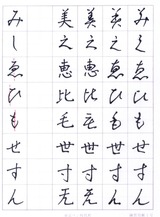 みしゑひもせすん
美之恵比毛世寸无
美之恵比毛世寸无
みしゑひもせすん